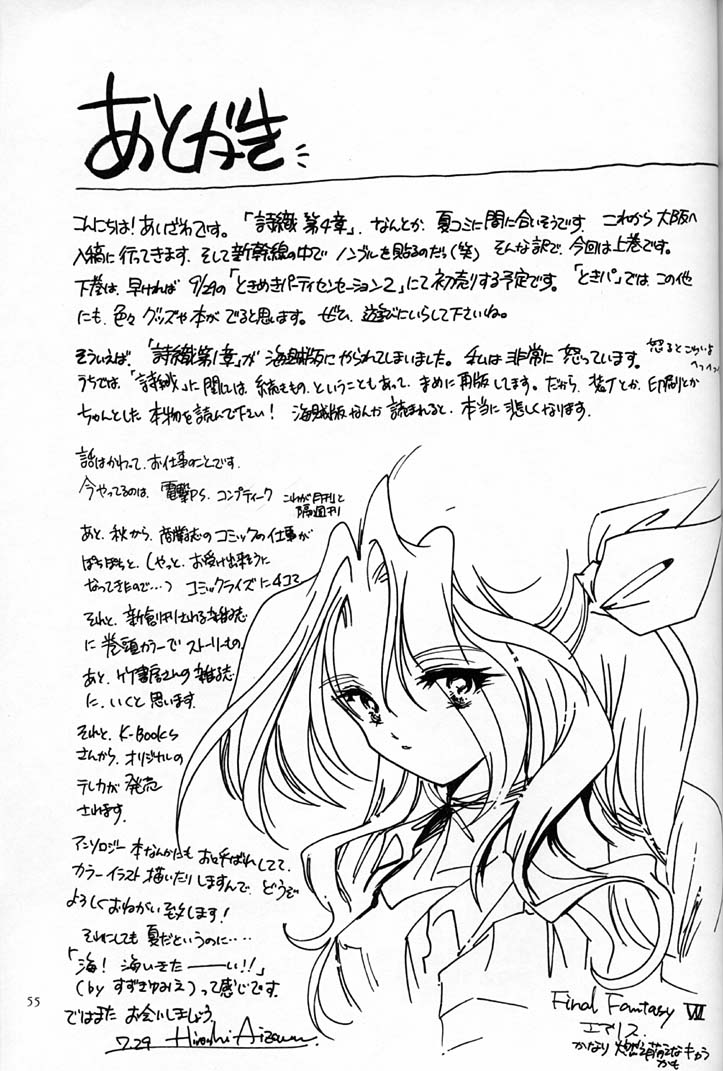 あとがき
こんにちは！あいざわです。「詩織 第4章」、なんとか、夏コミに間に合いそうです。これから大阪へ
入稿に行ってきます。そして新幹線の中でノンブルを貼るのだら(笑) そんな訳で、今回は上巻です。
下巻は、早ければ 9/29の「ときめきパーティセンセーション2」にて初売りする予定です。「ときパ」では、この他
にも、色々グッズや本がでると思います。ぜひ、遊びにいらして下さいね。
そういえば、「詩織第1章」が海賊版にやられてしまいました。私は非常に怒っています。
怒るとこわいよ
へっへっへっ
うちでは、「詩織」に関しては、続きもの、ということもあって、まめに再版します。だから、装丁とか、印刷とか
ちゃんとした本物を読んで下さい！ 海賊版なんか読まれると、本当に悲しくなります。
話はかわって、お仕事のことです。
今やってるのは、電撃PS、コンプティーク
これが月刊と
隔週刊
あと、秋から、商業誌のコミックの仕事が
ぽちぽちと、(やっと、お受け出来そうに
なってきたので…) コミックライズに4コマ
それと、新創刊される雑誌
に巻頭カラーでストーリーもの、
あと、竹書房さんの雑誌
に、いくと思います。
それと、K-Books
さんから、オリジナルの
テレカが発売
されます。
アンソロジー本なんかにもお呼ばれしてて、
カラーイラスト描いたりしますんで、どうぞ
よろしくおねがい致します！
それにしても夏だというのに‥‥
「海！ 海いきたーーい!!」
(by すずきゆみえ) って感じです。
ではまた お会いしましょう。
7.29 Hiroshi Aizawa.
Final Fantasy VII
エアリス.
かなり 萌えなキャラ
かも
55